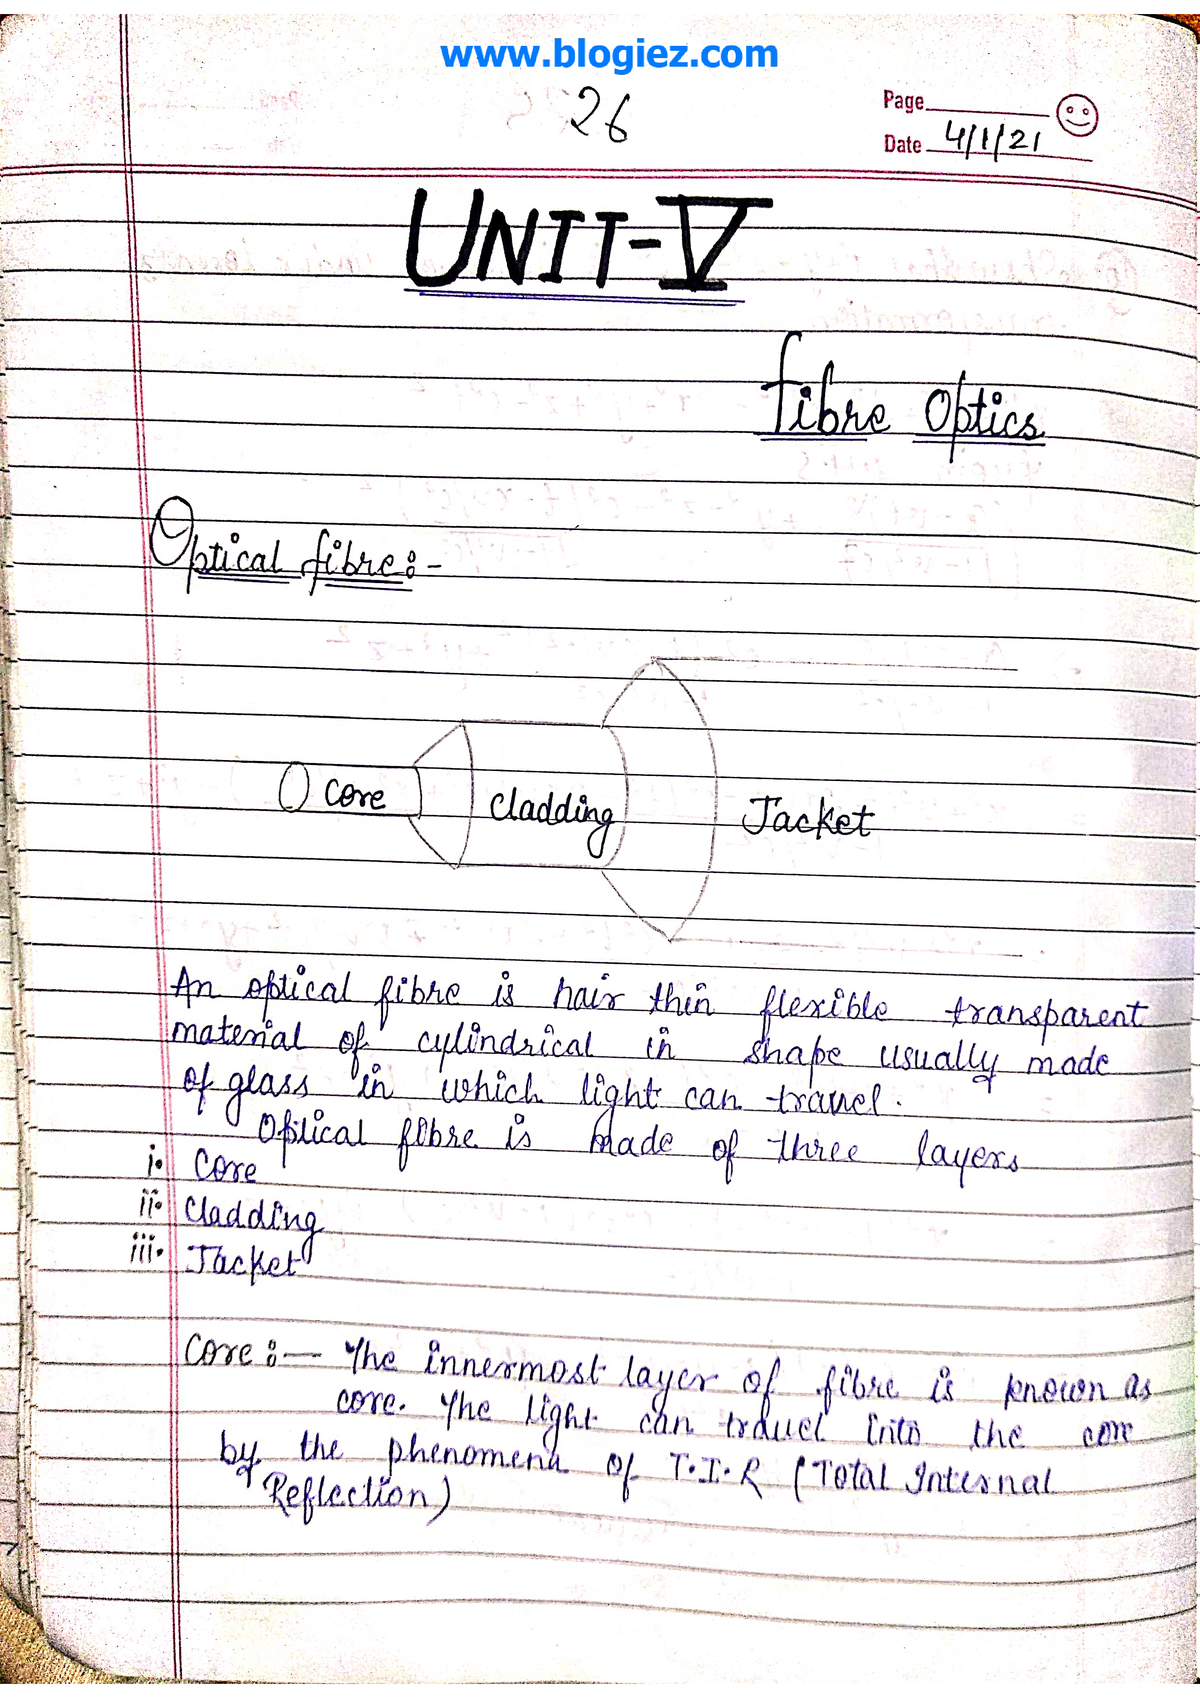 www.blogiez.com
26
Page
Date 4/1/21
UNIT-V
Fibre Optics
Optical fibre:-
Core
Cladding
Jacket
An optical fibre is hair thin flexible transparent
material of cylindrical in shape usually made
of glass in which light can travel.
Optical fibre is made of three layers
i. Core
ii. Cladding
iii. Jacket
Core :— The innermost layer of fibre is known as
core. The light can travel into the core
by the phenomena of T.I.R (Total Internal
Reflection)